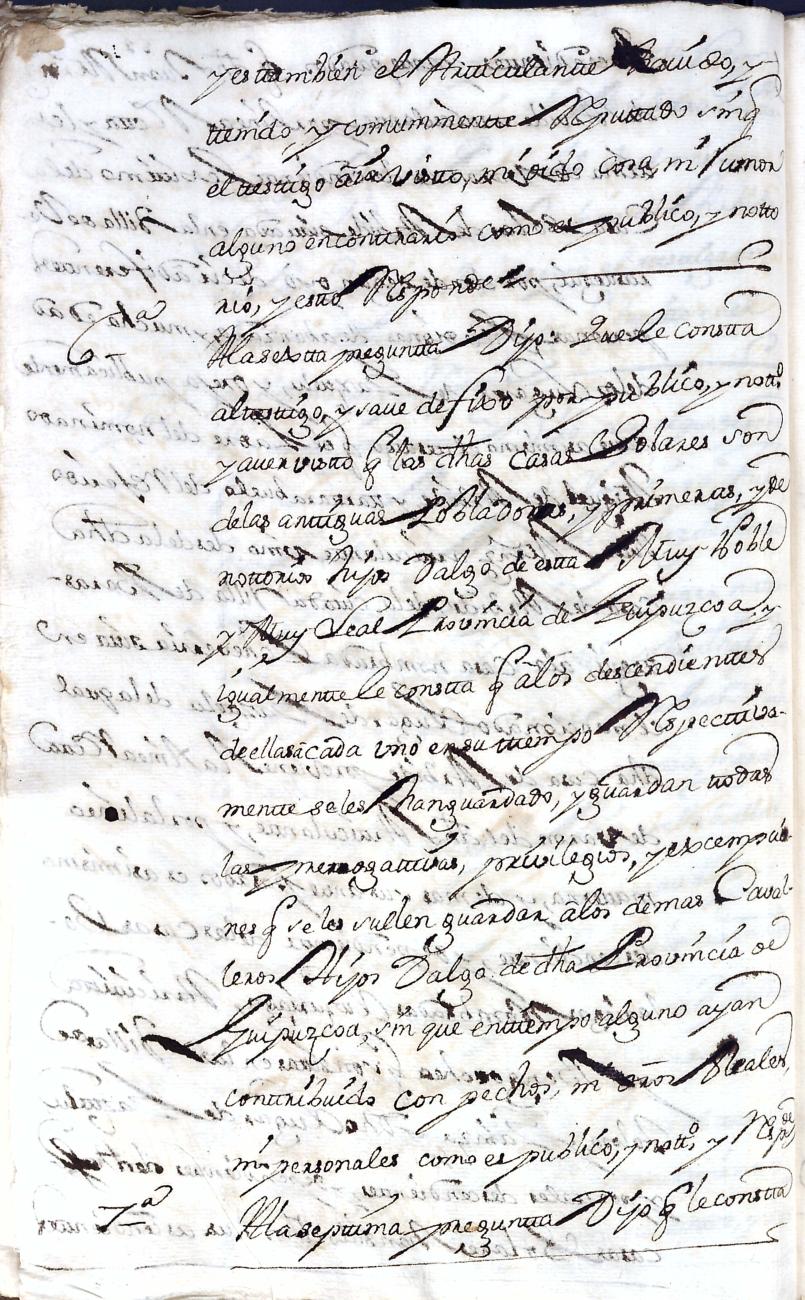 y esttambien el Artticulantte havido, y
ttenido, y comunmentte Reputtado sin q̃
el testtigo aia vistto, ni oido cosa, ni rumor
alguno en conttrario como es publico, y notto
rio, y estto Responde
6ª
A la sextta preguntta Dijo: Que le constta
al testtigo, y save de fixo por publico, y nottº
y aver vistto q̃ las dhas Casas Solares son
de las anttiguas Pobladoras, y primeras, y de
nottorios hijos Dalgo de estta Muy Noble
y Muy Leal Provincia de Guipuzcoa, y
igualmentte le constta q̃ a los descendienttes
de ellas a cada uno en su ttiempo Respectiva-
mentte se les han guardado, y guardan ttodas
las prerrogattivas, privilegios, y exempcio-
nes q̃ se les suelen guardar a los demas Caval-
leros Hijos Dalgo de dha Provincia de
Guipuzcoa, sin que en ttiempo alguno ayan
conttribuido con pechos, ni dros Reales,
ni personales como es publico, y nottº y Respde
7ª
A la septtima preguntta Dijo q̃ le constta